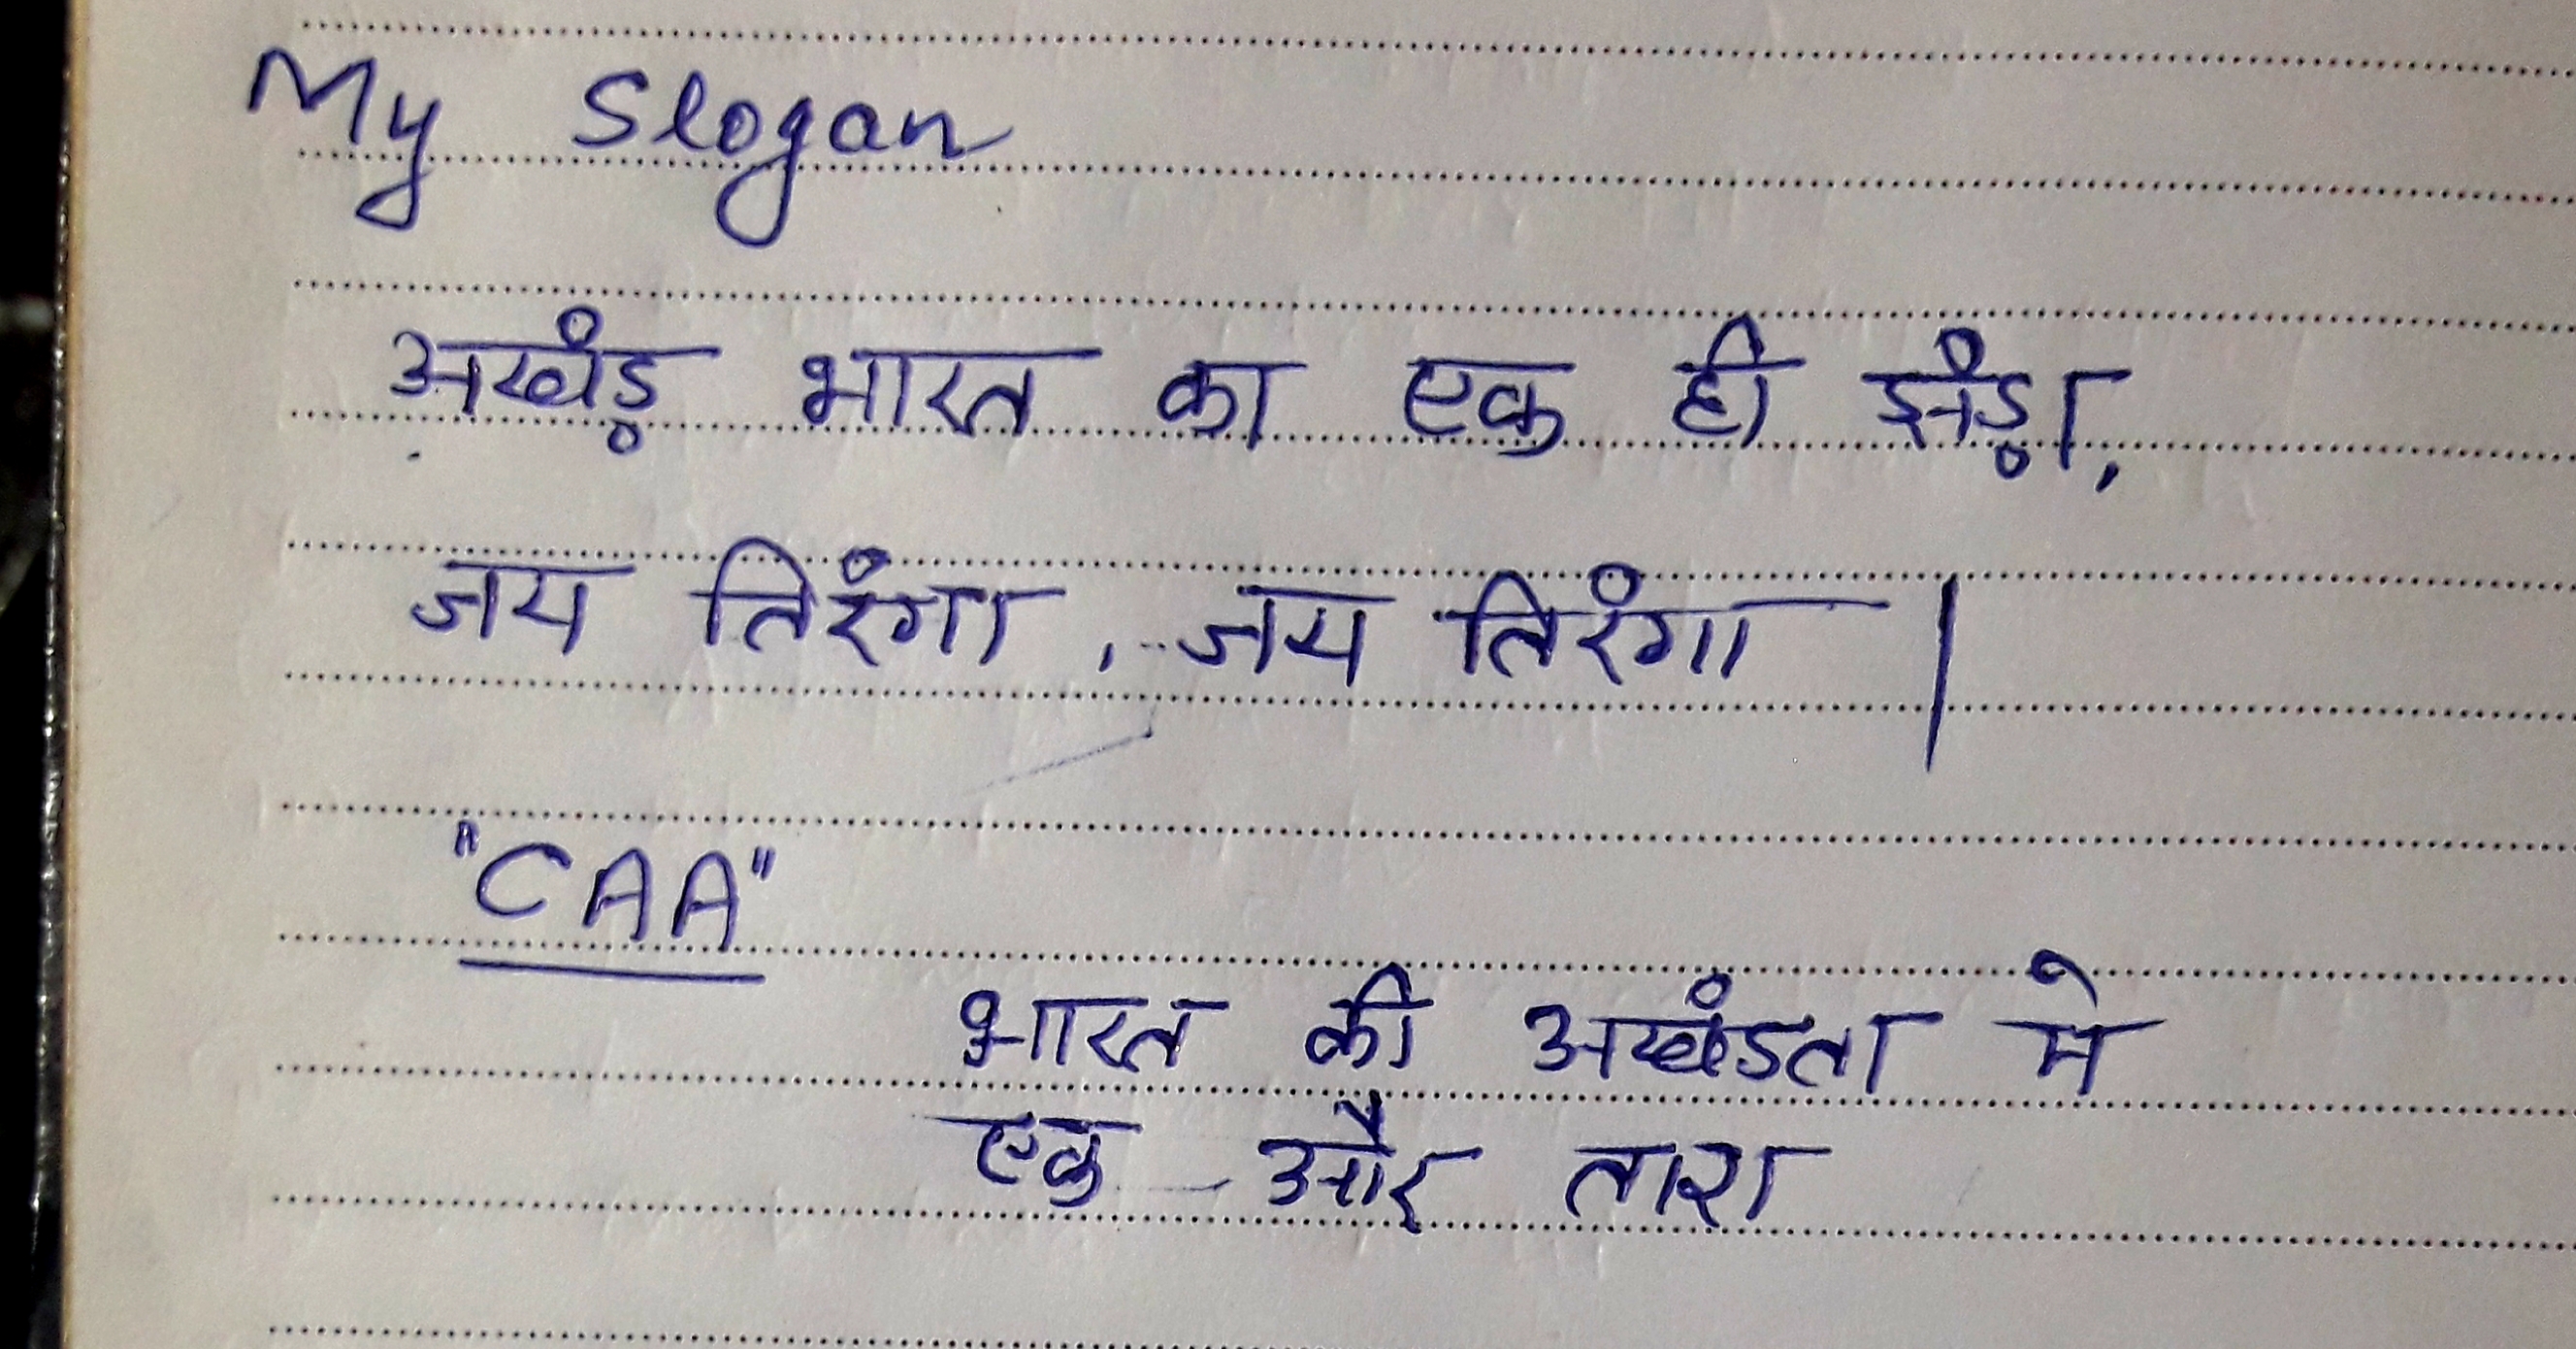 My Slogan
अखंड़ भारत का एक ही झंड़ा,
जय तिरंगा, जय तिरंगा |
"CAA"
भारत की अखंडता मे
एक और तारा